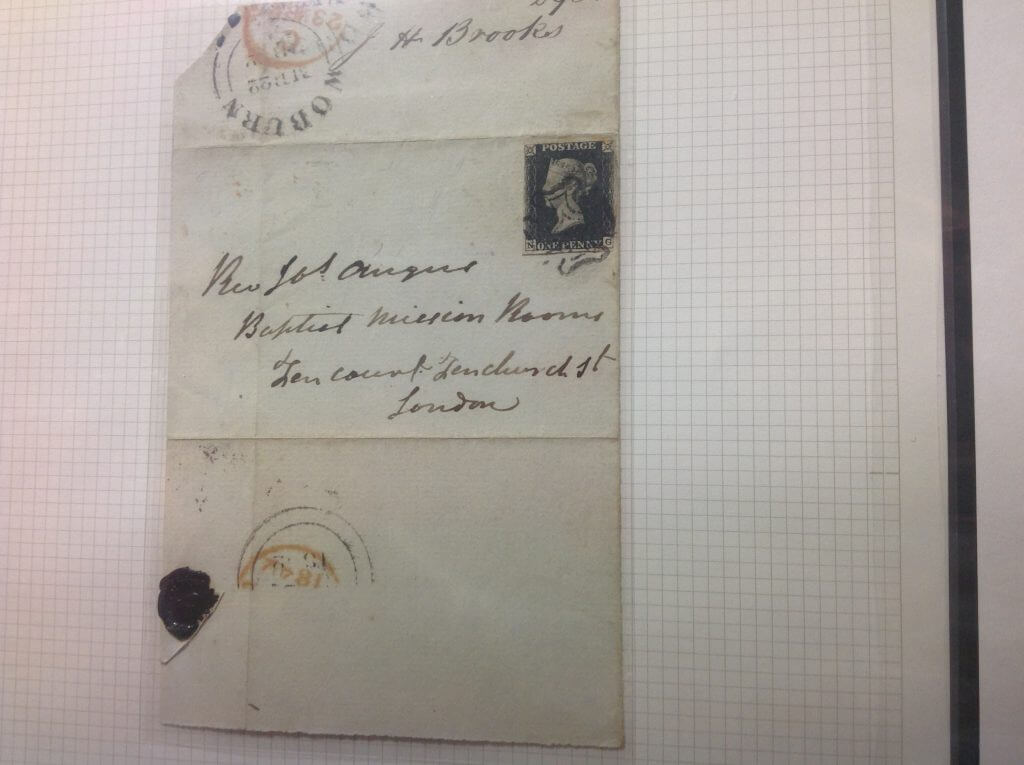 H Brooks
WOBURN
POSTAGE
N ONE PENNY G
Rev Jos Angus
Baptist Mission Rooms
Fen Court Fenchurch St
London
184